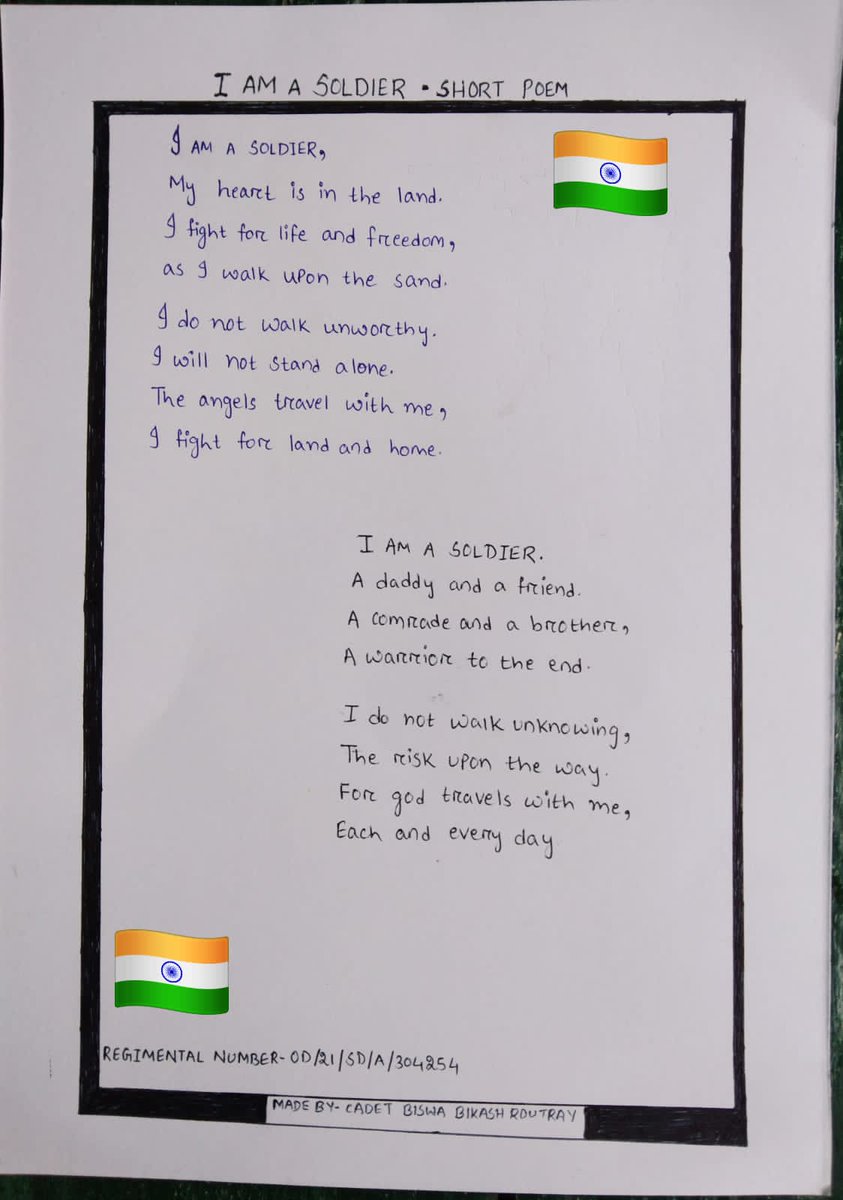 I AM A SOLDIER • SHORT POEM
I AM A SOLDIER,
My heart is in the land.
I fight for life and freedom,
as I walk upon the sand.
I do not walk unworthy.
I will not stand alone.
The angels travel with me,
I fight for land and home.
I AM A SOLDIER.
A daddy and a friend.
A comrade and a brother,
A warrior to the end.
I do not walk unknowing,
The risk upon the way.
For god travels with me,
Each and every day
REGIMENTAL NUMBER- OD/21/SD/A/304254
MADE BY- CADET BISWA BIKASH ROUTRAY